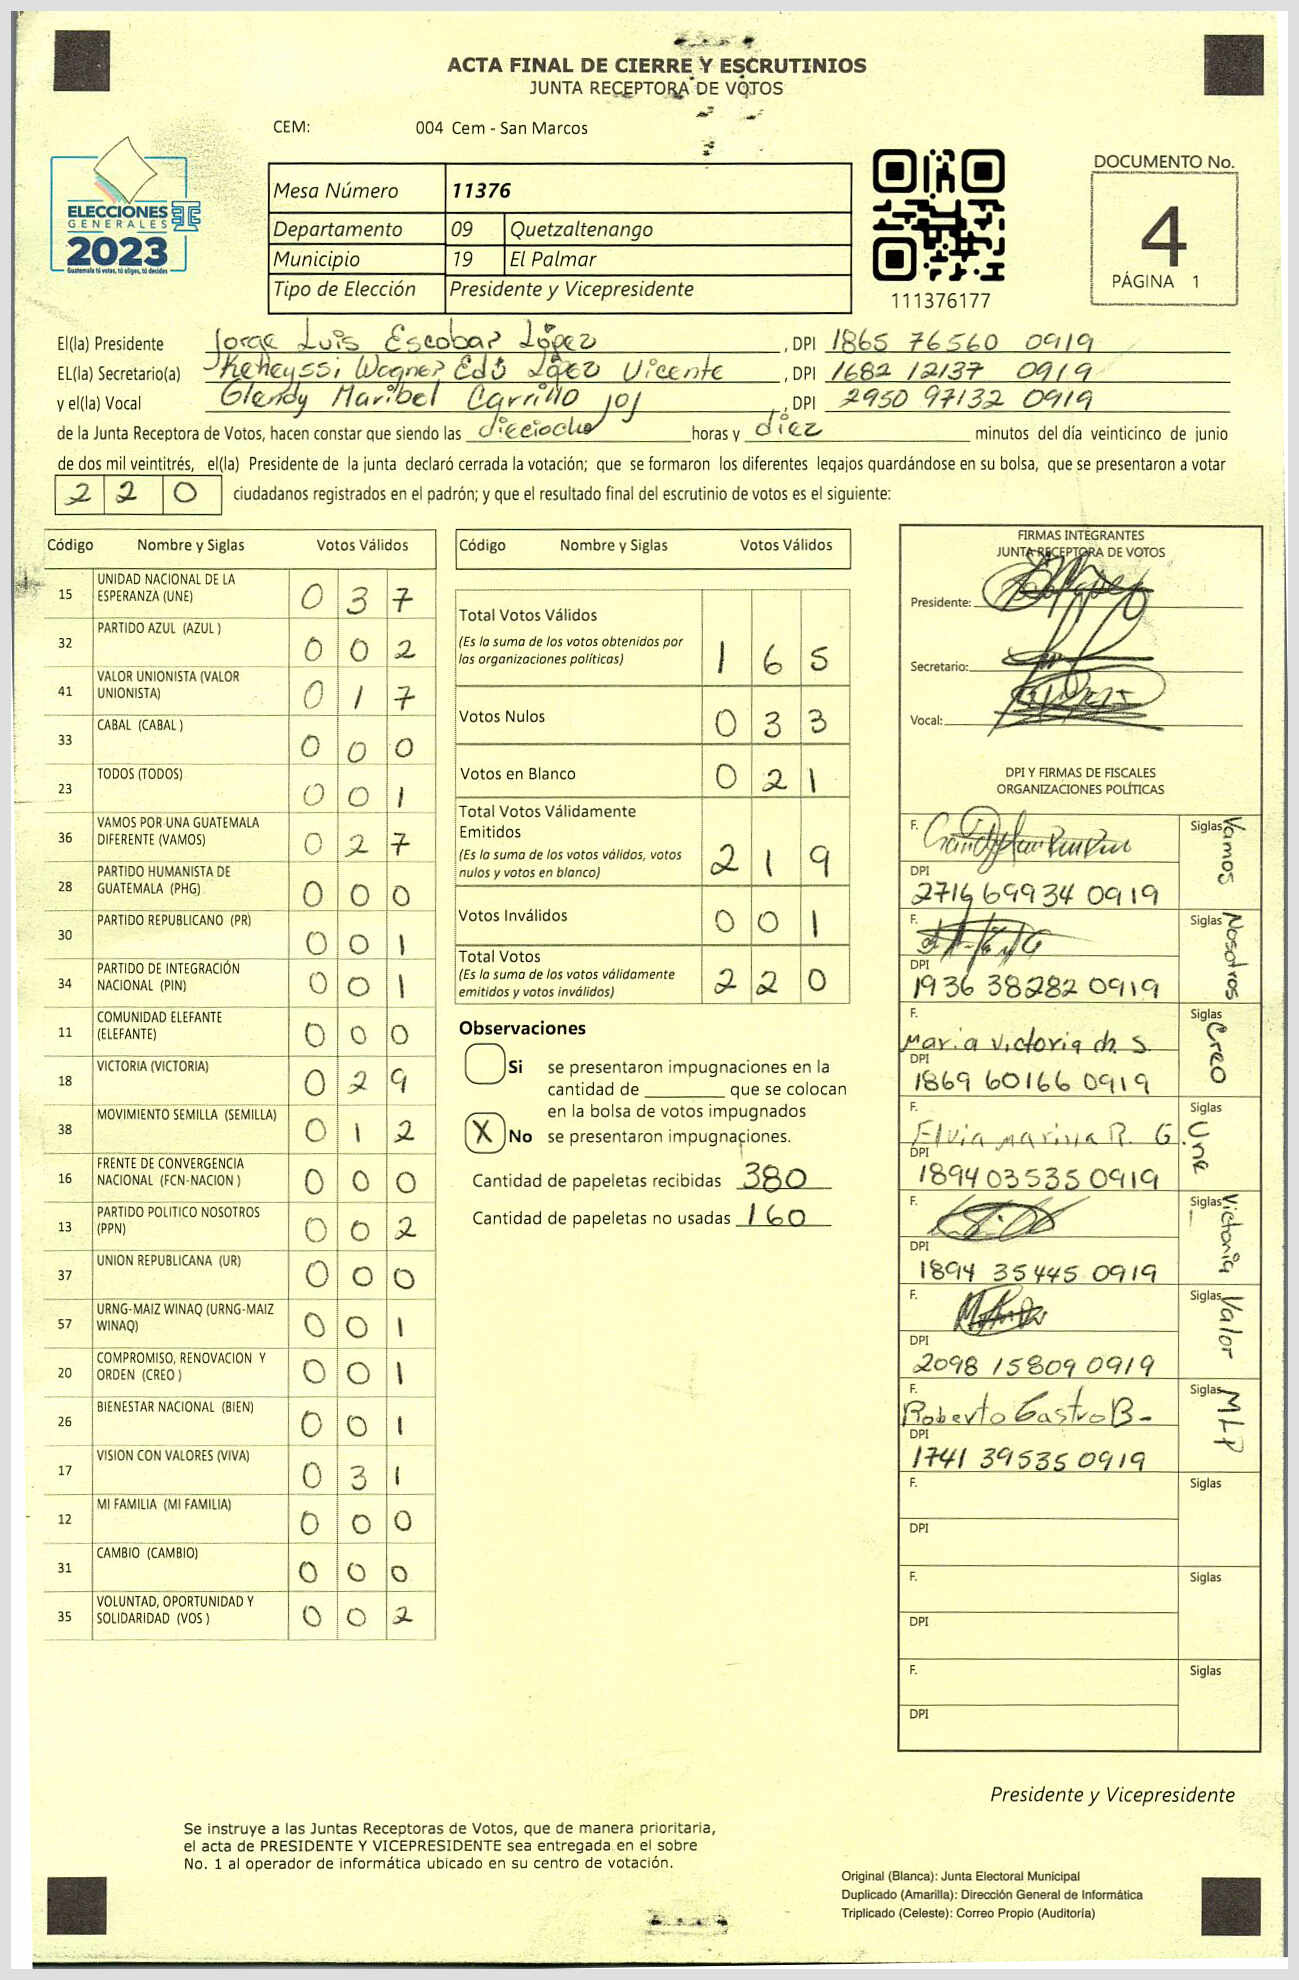 ACTA FINAL DE CIERRE Y ESCRUTINIOS
JUNTA RECEPTORA DE VOTOS
CEM: 004 Cem - San Marcos
ELECCIONES
GENERALES
2023
Guatemala tú votas, tú eliges, tú decides
Mesa Número 11376
Departamento 09 Quetzaltenango
Municipio 19 El Palmar
Tipo de Elección Presidente y Vicepresidente
111376177
DOCUMENTO No.
4
PÁGINA 1
El(la) Presidente Jorge Luis Escobar López, DPI 1865 76560 0919
EL(la) Secretario(a) Wagner Edú López Vicente, DPI 1682 12137 0919
y el(la) Vocal Glendy Maribel Carrillo joj, DPI 2950 97132 0919
de la Junta Receptora de Votos, hacen constar que siendo las dieciocho horas y diez minutos del día veinticinco de junio
de dos mil veintitrés, el(la) Presidente de la junta declaró cerrada la votación; que se formaron los diferentes legajos guardándose en su bolsa, que se presentaron a votar
220 ciudadanos registrados en el padrón; y que el resultado final del escrutinio de votos es el siguiente:
Código Nombre y Siglas Votos Válidos
15 UNIDAD NACIONAL DE LA ESPERANZA (UNE) 037
32 PARTIDO AZUL (AZUL ) 002
41 VALOR UNIONISTA (VALOR UNIONISTA) 017
33 CABAL (CABAL ) 000
23 TODOS (TODOS) 001
36 VAMOS POR UNA GUATEMALA DIFERENTE (VAMOS) 027
28 PARTIDO HUMANISTA DE GUATEMALA (PHG) 000
30 PARTIDO REPUBLICANO (PR) 001
34 PARTIDO DE INTEGRACIÓN NACIONAL (PIN) 001
11 COMUNIDAD ELEFANTE (ELEFANTE) 000
18 VICTORIA (VICTORIA) 029
38 MOVIMIENTO SEMILLA (SEMILLA) 012
16 FRENTE DE CONVERGENCIA NACIONAL (FCN-NACION ) 000
13 PARTIDO POLITICO NOSOTROS (PPN) 002
37 UNION REPUBLICANA (UR) 000
57 URNG-MAIZ WINAQ (URNG-MAIZ WINAQ) 001
20 COMPROMISO, RENOVACION Y ORDEN (CREO ) 001
26 BIENESTAR NACIONAL (BIEN) 001
17 VISION CON VALORES (VIVA) 031
12 MI FAMILIA (MI FAMILIA) 000
31 CAMBIO (CAMBIO) 000
35 VOLUNTAD, OPORTUNIDAD Y SOLIDARIDAD (VOS ) 002
Código Nombre y Siglas Votos Válidos
Total Votos Válidos
(Es la suma de los votos obtenidos por
las organizaciones políticas) 165
Votos Nulos 033
Votos en Blanco 021
Total Votos Válidamente
Emitidos
(Es la suma de los votos válidos, votos
nulos y votos en blanco) 219
Votos Inválidos 001
Total Votos
(Es la suma de los votos válidamente
emitidos y votos inválidos) 220
Observaciones
Si se presentaron impugnaciones en la
cantidad de ________ que se colocan
en la bolsa de votos impugnados
X No se presentaron impugnaciones.
Cantidad de papeletas recibidas 380
Cantidad de papeletas no usadas 160
FIRMAS INTEGRANTES
JUNTA RECEPTORA DE VOTOS
Presidente:
Secretario:
Vocal:
DPI Y FIRMAS DE FISCALES
ORGANIZACIONES POLÍTICAS
F. Siglas Vamos
DPI
2716 69934 0919
F. Siglas Nosotros
DPI
1936 38282 0919
F. Maria Victoria ch. S. Siglas Creo
DPI
1869 60166 0919
F. Elvia marina R. G. Siglas Une
DPI
1894 03535 0919
F. Siglas Victoria
DPI
1894 35445 0919
F. Siglas Valor
DPI
2098 15809 0919
F. Roberto Castro B- Siglas MLP
DPI
1741 39535 0919
F. Siglas
DPI
F. Siglas
DPI
F. Siglas
DPI
Presidente y Vicepresidente
Se instruye a las Juntas Receptoras de Votos, que de manera prioritaria,
el acta de PRESIDENTE Y VICEPRESIDENTE sea entregada en el sobre
No. 1 al operador de informática ubicado en su centro de votación.
Original (Blanca): Junta Electoral Municipal
Duplicado (Amarilla): Dirección General de Informática
Triplicado (Celeste): Correo Propio (Auditoría)